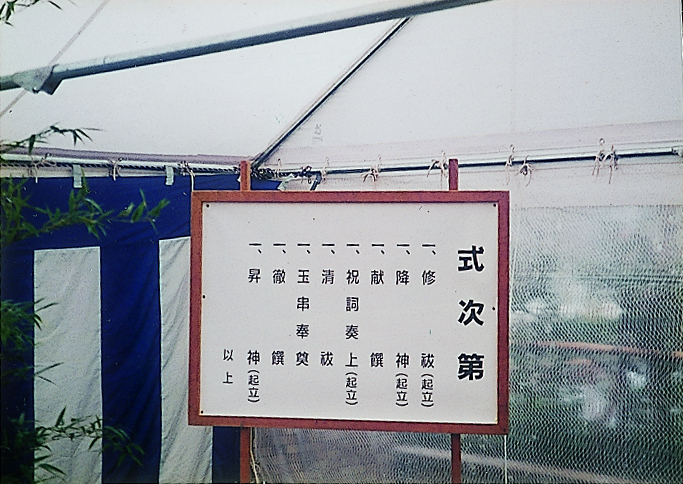 式次第
一、修祓（起立）
一、降神（起立）
一、献饌
一、祝詞奏上（起立）
一、清祓
一、玉串奉奠
一、徹饌
一、昇神（起立）
以上